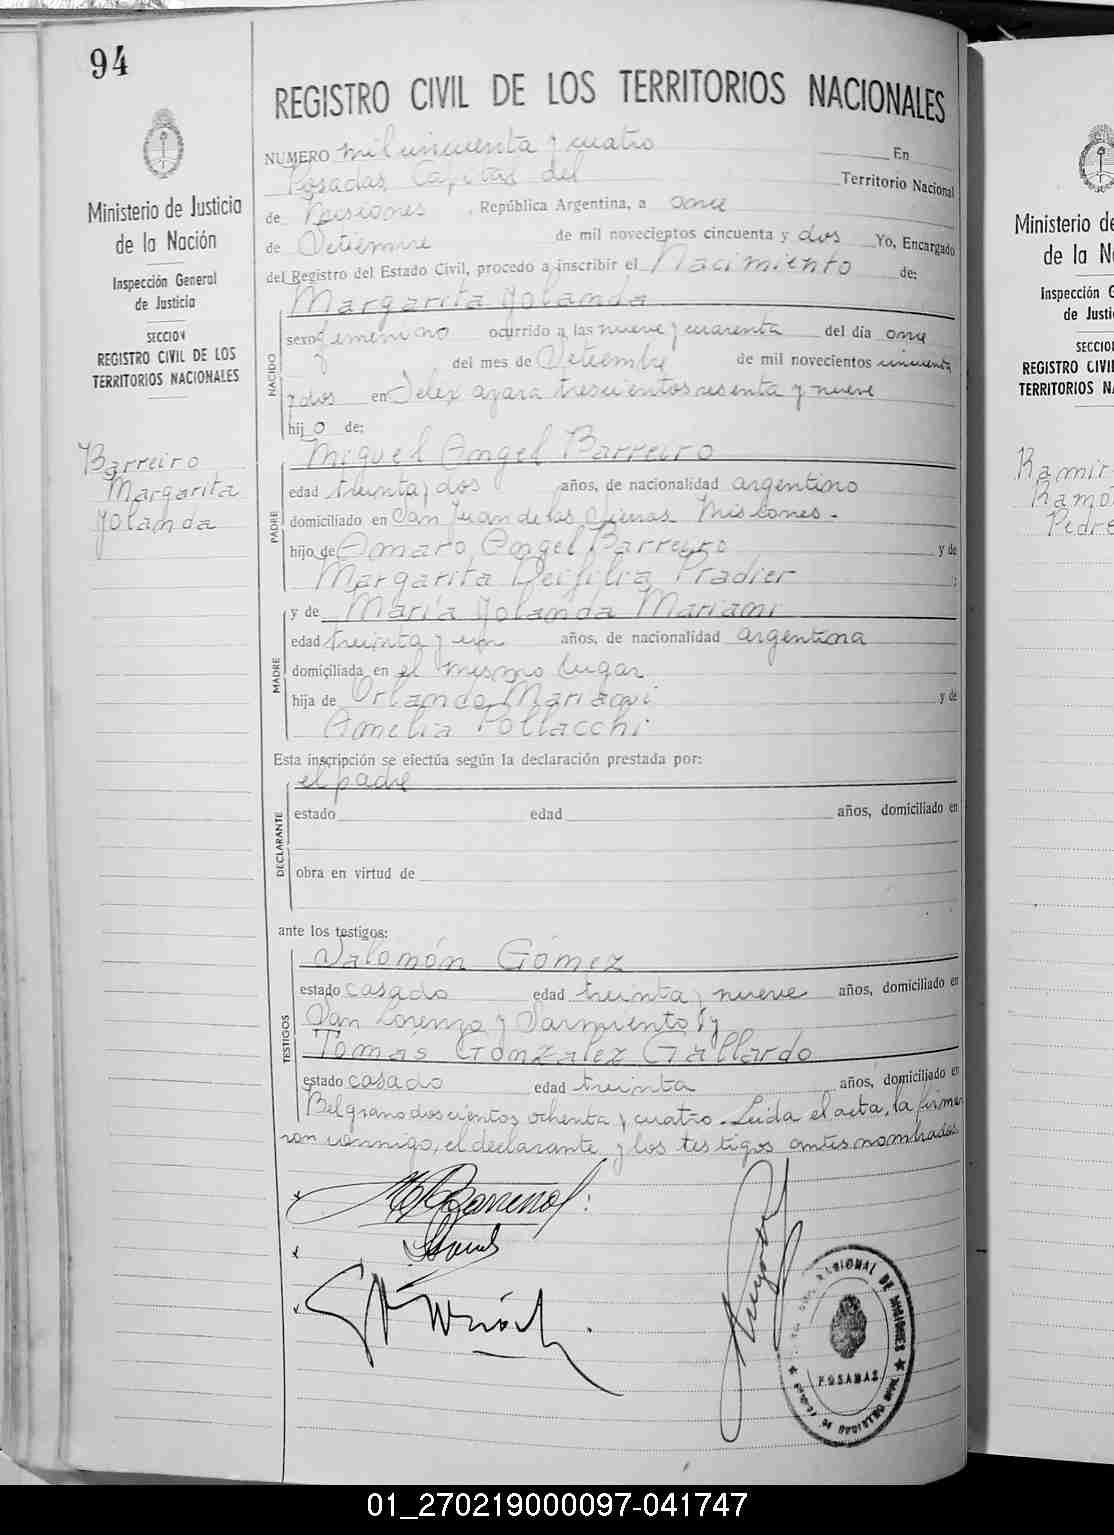 94
REGISTRO CIVIL DE LOS TERRITORIOS NACIONALES
Ministerio de Justicia
de la Nación
Inspección General
de Justicia
SECCION
REGISTRO CIVIL DE LOS
TERRITORIOS NACIONALES
Barreiro
Margarita
Yolanda
NUMERO mil cincuenta y cuatro En
Posadas Capital del Territorio Nacional
de Misiones, República Argentina, a once
de Setiembre de mil novecientos cincuenta y dos Yo, Encargado
del Registro del Estado Civil, procedo a inscribir el Nacimiento de:
NACIDO
Margarita Yolanda
sexo femenino ocurrido a las nueve y cuarenta del día once
del mes de Setiembre de mil novecientos cincuenta
y dos en Felix azara trescientos sesenta y nueve
hij o de:
PADRE
Miguel Angel Barreiro
edad treinta y dos años, de nacionalidad argentino
domiciliado en San Juan de las Sierras Misiones.
hijo de Amaro Angel Barreiro y de
Margarita Deifilia Pradier ;
MADRE
y de Maria Yolanda Mariani
edad treinta y un años, de nacionalidad argentina
domiciliada en el mismo lugar
hija de Orlando Mariani y de
Amelia Pollacchi
Esta inscripción se efectúa según la declaración prestada por:
DECLARANTE
el padre
estado edad años, domiciliado en
obra en virtud de
ante los testigos:
TESTIGOS
Salomón Gómez
estado casado edad treinta y nueve años, domiciliado en
San Lorenzo y Sarmiento y
Tomás González Gallardo
estado casado edad treinta años, domiciliado en
Belgrano doscientos ochenta y cuatro. Leida el acta, la firma
ron conmigo, el declarante y los testigos antes nombrados
POSADAS
Ministerio de
de la N
Inspección G
de Justi
SECCION
REGISTRO CIVI
TERRITORIOS NA
Ramir
Ramó
Pedre
01_270219000097-041747